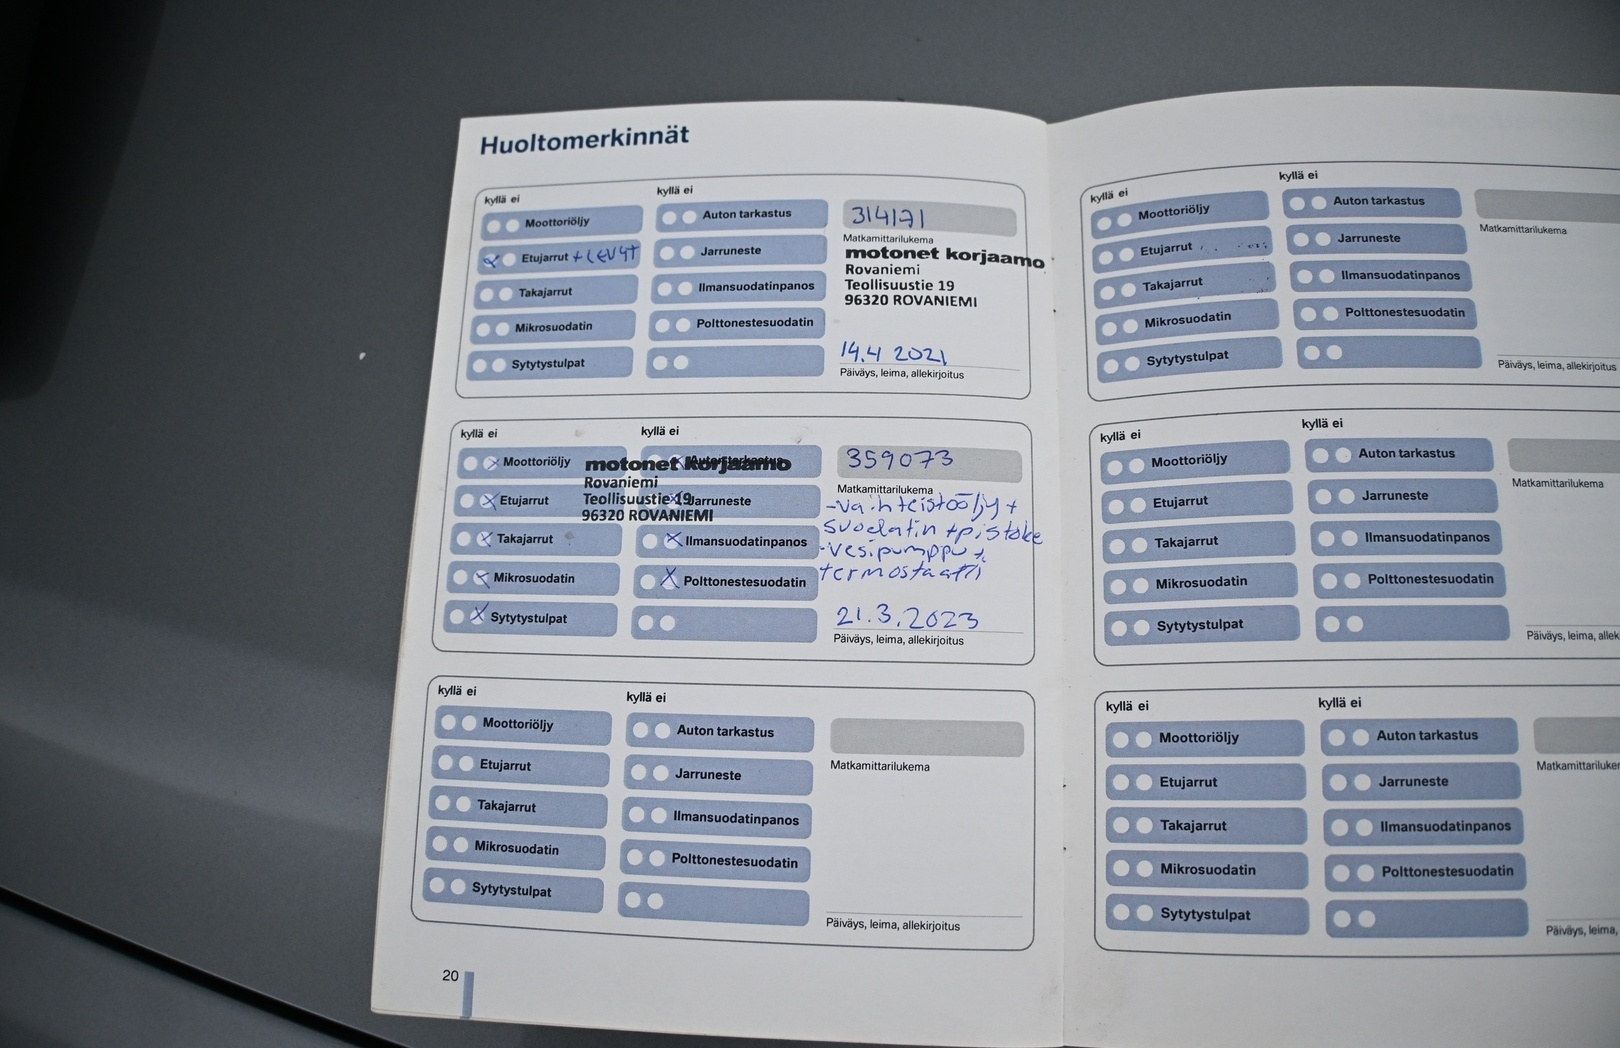 Huoltomerkinnät
kyllä ei
kyllä ei
Moottoriöljy
Auton tarkastus
314171
Matkamittarilukema
Etujarrut + LEVYT
Jarruneste
motonet korjaamo
Rovaniemi
Teollisuustie 19
96320 ROVANIEMI
Takajarrut
Ilmansuodatinpanos
Mikrosuodatin
Polttonestesuodatin
Sytytystulpat
14.4 2021
Päiväys, leima, allekirjoitus
kyllä ei
kyllä ei
Moottoriöljy
Auton tarkastus
359073
Matkamittarilukema
motonet korjaamo
Rovaniemi
Teollisuustie 19
96320 ROVANIEMI
Etujarrut
Jarruneste
-vaihteistoöljy +
suodatin + pistoke
-vesipumppu +
termostaatti
Takajarrut
Ilmansuodatinpanos
Mikrosuodatin
Polttonestesuodatin
Sytytystulpat
21.3.2023
Päiväys, leima, allekirjoitus
kyllä ei
kyllä ei
Moottoriöljy
Auton tarkastus
Matkamittarilukema
Etujarrut
Jarruneste
Takajarrut
Ilmansuodatinpanos
Mikrosuodatin
Polttonestesuodatin
Sytytystulpat
Päiväys, leima, allekirjoitus
20
kyllä ei
kyllä ei
Moottoriöljy
Auton tarkastus
Matkamittarilukema
Etujarrut
Jarruneste
Takajarrut
Ilmansuodatinpanos
Mikrosuodatin
Polttonestesuodatin
Sytytystulpat
Päiväys, leima, allekirjoitus
kyllä ei
kyllä ei
Moottoriöljy
Auton tarkastus
Matkamittarilukema
Etujarrut
Jarruneste
Takajarrut
Ilmansuodatinpanos
Mikrosuodatin
Polttonestesuodatin
Sytytystulpat
Päiväys, leima, allek
kyllä ei
kyllä ei
Moottoriöljy
Auton tarkastus
Matkamittariluker
Etujarrut
Jarruneste
Takajarrut
Ilmansuodatinpanos
Mikrosuodatin
Polttonestesuodatin
Sytytystulpat
Päiväys, leima,